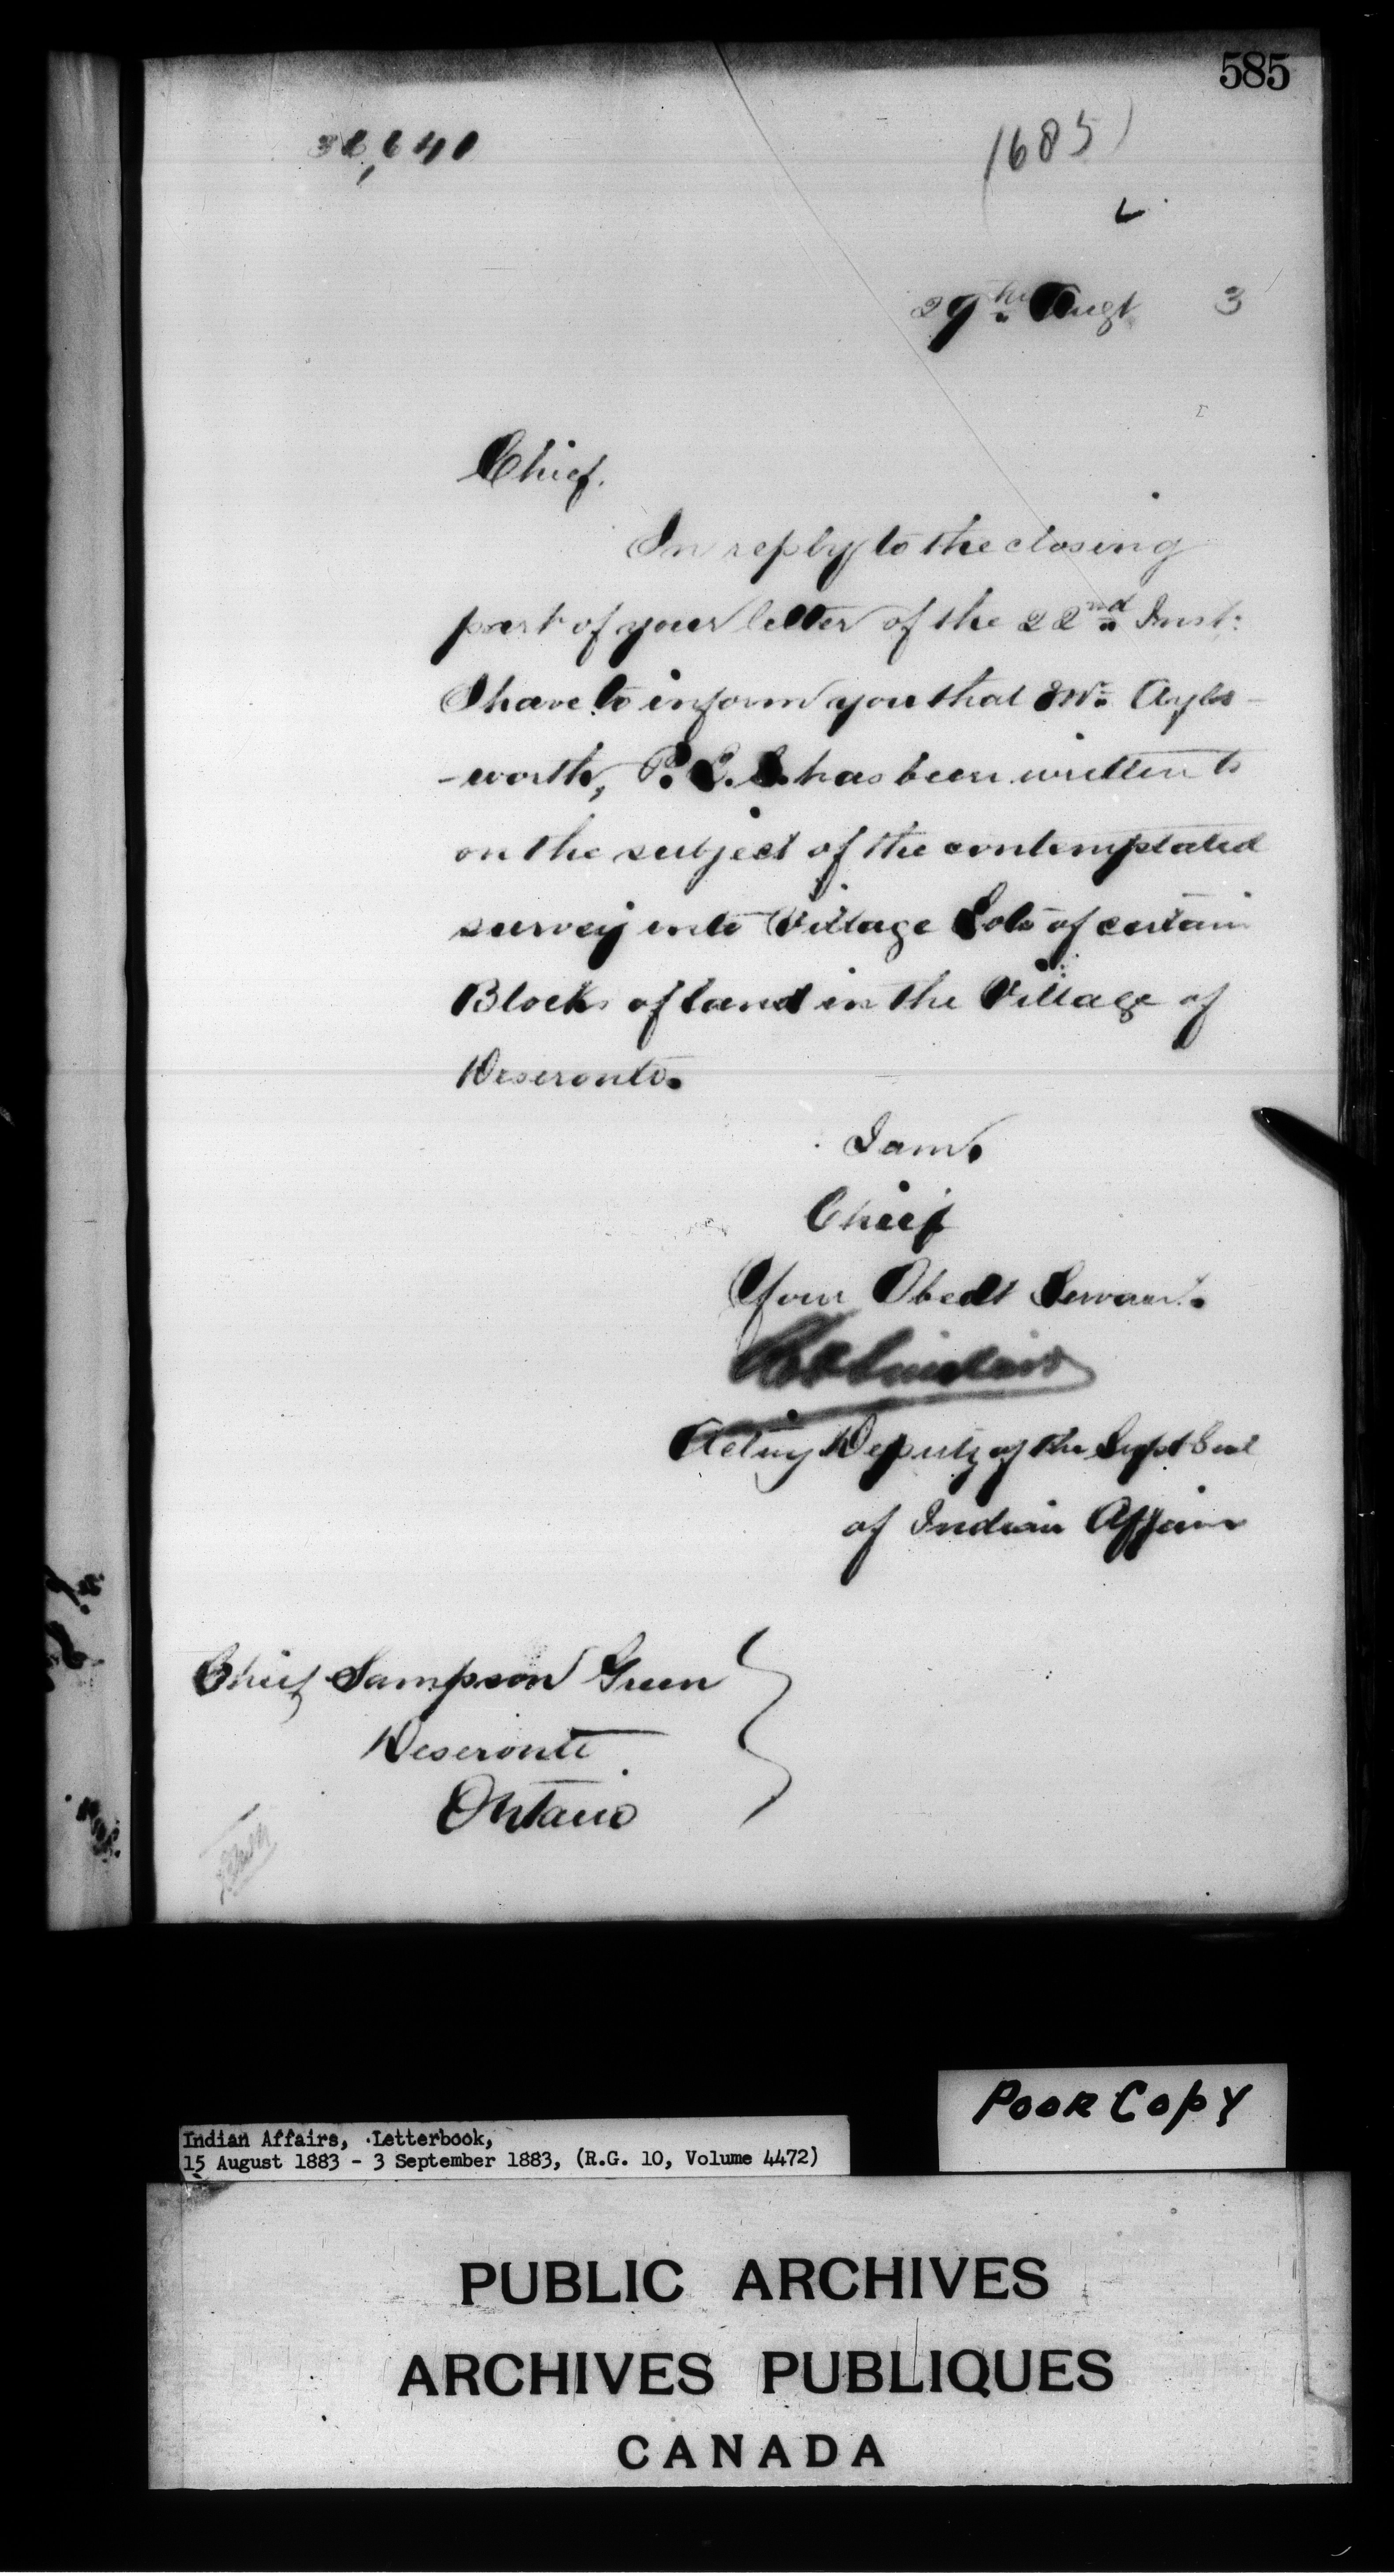 585
36,640
(685)
29th Augt 3
Chief.
In reply to the closing
part of your letter of the 22nd Inst:
I have to inform you that Mr. Ayls-
-worth, P. L. S. has been written to
on the subject of the contemplated
survey into Village Lots of certain
Blocks of land in the Village of
Deseronto.
I am.
Chief
Your Obedt Servant.
Acting Deputy of the Supt Genl
of Indian Affairs
Chief Sampson Green
Deseronto
Ontario
POOR COPY
Indian Affairs, Letterbook,
15 August 1883 - 3 September 1883, (R.G. 10, Volume 4472)
PUBLIC ARCHIVES
ARCHIVES PUBLIQUES
CANADA